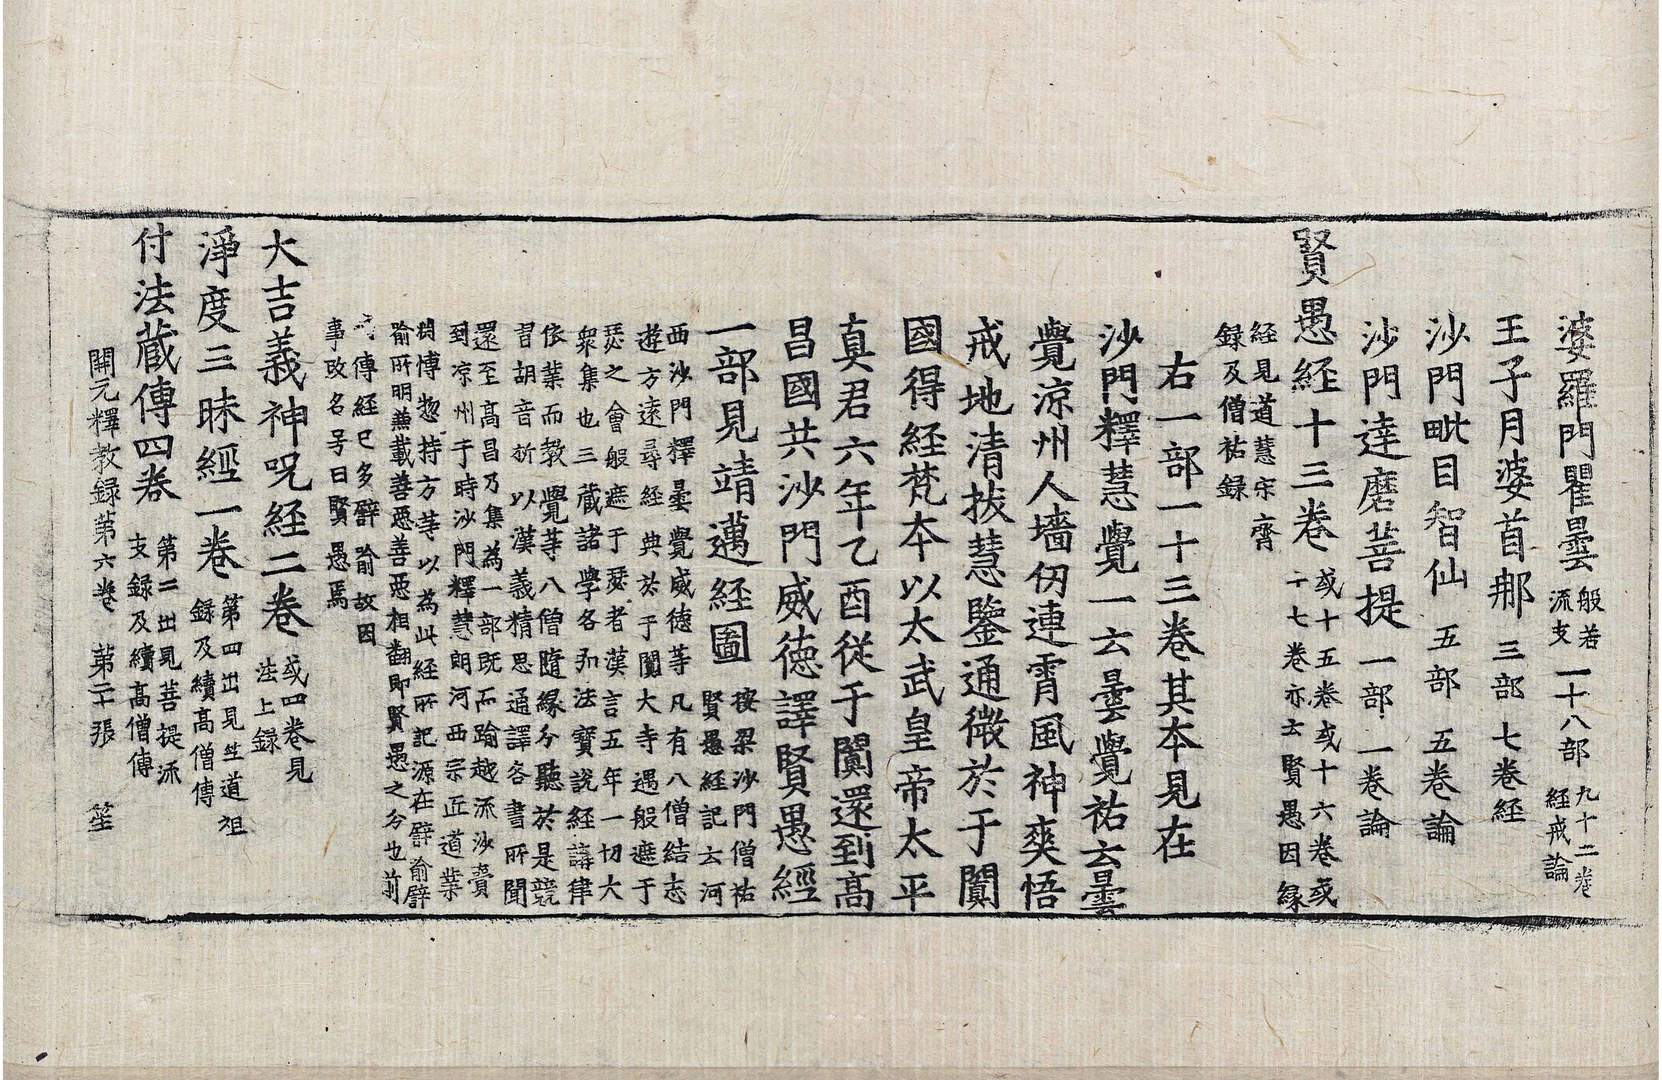 婆羅門瞿曇般若流支一十八部九十二卷經戒論
王子月婆首那三部七卷経
沙門毗目智仙五部五卷論
沙門達磨菩提一部一卷論
賢愚経十三卷或十五卷或十六卷或十七卷亦云賢愚因縁
経見道慧宋齊録及僧祐録
右一部一十三卷其本見在
沙門釋慧覺一云曇覺祐云曇
覺涼州人墻仞連霄風神爽悟
戒地清抜慧鑒通微於于闐
國得経梵本以太武皇帝太平
真君六年乙酉従于闐還到髙
昌國共沙門威德譯賢愚經
一部見靖邁経圖按梁沙門僧祐賢愚経記云河
西沙門釋曇覺威德等凡有八僧結志
遊方遠尋経典於于闐大寺遇般遮于
瑟之會般遮于瑟者漢言五年一切大
衆集也三藏諸學各弘法寳説経講律
依業而教覺等八僧隨縁分聽於是競
習胡音折以漢義精思通譯各書所聞
還至髙昌乃集為一部既而踰越流沙賷
到凉州于時沙門釋慧朗河西宗匠道業
博惣持方等以為此経所記源在譬喻譬
喻所明兼載善惡善惡相翻即賢愚之分也前
傳経已多譬喻故因
事改名号曰賢愚焉
大吉義神呪経二卷或四卷見法上録
淨度三昧經一卷第四出見竺道祖録及續髙僧傳
付法蔵傳四卷第二出見菩提流支録及續髙僧傳
開元釋教録第六卷　第二十張　笙